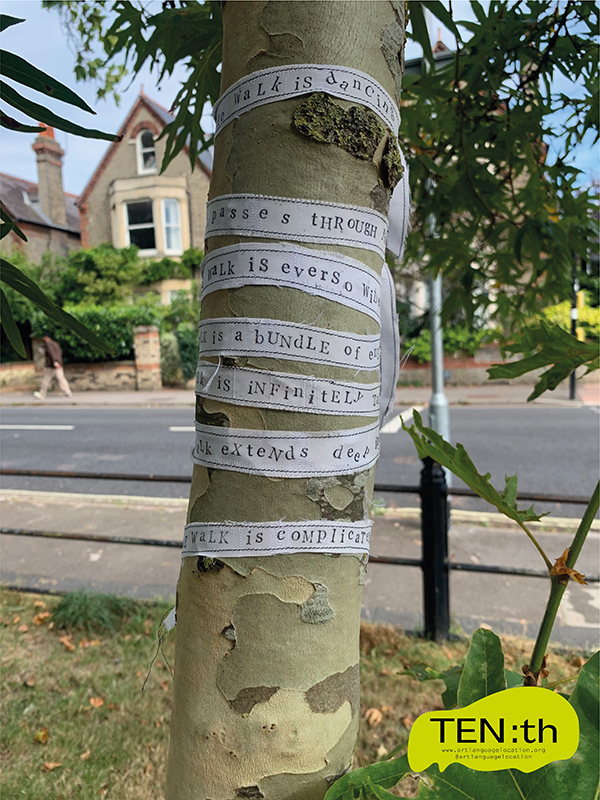 WALK iS dancing
passes tHROUGH
WALK iS everso Wil
iS a bUNdLE OF
iS iNFiNitELy
aLk eXtENds deep
WaLK iS cOMPLicate
TEN:th
www.artlanguagelocation.org
@artlanguagelocation